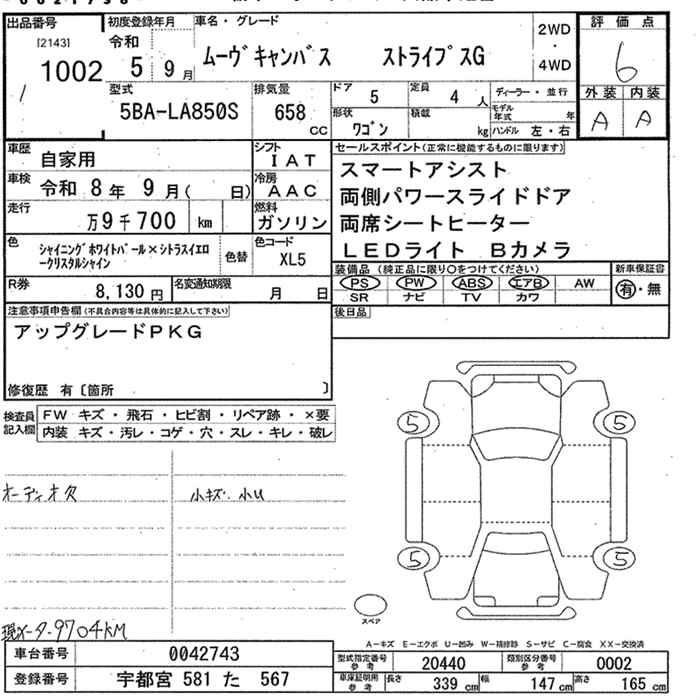 出品番号
[2143]
1002
初度登録年月
令和
5年9月
車名・グレード
ムーヴキャンバス ストライプスG
2WD
・
4WD
評価点
6
外装 内装
A A
型式
5BA-LA850S
排気量
658
CC
ドア
5
定員
4人
形状
ワゴン
積載
kg
ディーラー・並行
モデル年式 年
ハンドル 左・右
車歴
自家用
シフト
IAT
車検
令和 8年 9月( 日)
冷房
AAC
走行
万9千700 km
燃料
ガソリン
色
シャイニングホワイトパール×シトラスイエロ
ークリスタルシャイン
色替
色コード
XL5
R券
8,130円
名変通知期限
月 日
セールスポイント(正常に機能するものに限ります)
スマートアシスト
両側パワースライドドア
両席シートヒーター
LEDライト Bカメラ
装備品 (純正品に限り○をつけてください)
PS PW ABS エアB AW
SR ナビ TV カワ
新車保証書
有・無
後日品
注意事項申告欄(不具合内容等は具体的に記入して下さい)
アップグレードPKG
修復歴 有〔箇所 〕
検査員
記入欄
FW キズ・飛石・ヒビ割・リペア跡・×要
内装 キズ・汚レ・コゲ・穴・スレ・キレ・破レ
オーディオ欠
小キズ 小U
現メーター9704KM
5 5
5 5
スペア
A-キズ E-エクボ U-凹み W-補修跡 S-サビ C-腐食 XX-交換済
車台番号 0042743
登録番号 宇都宮 581 た 567
型式指定番号
参考
20440
類別区分番号
参考
0002
車庫証明用
参考
長さ 339 cm 幅 147 cm 高さ 165 cm